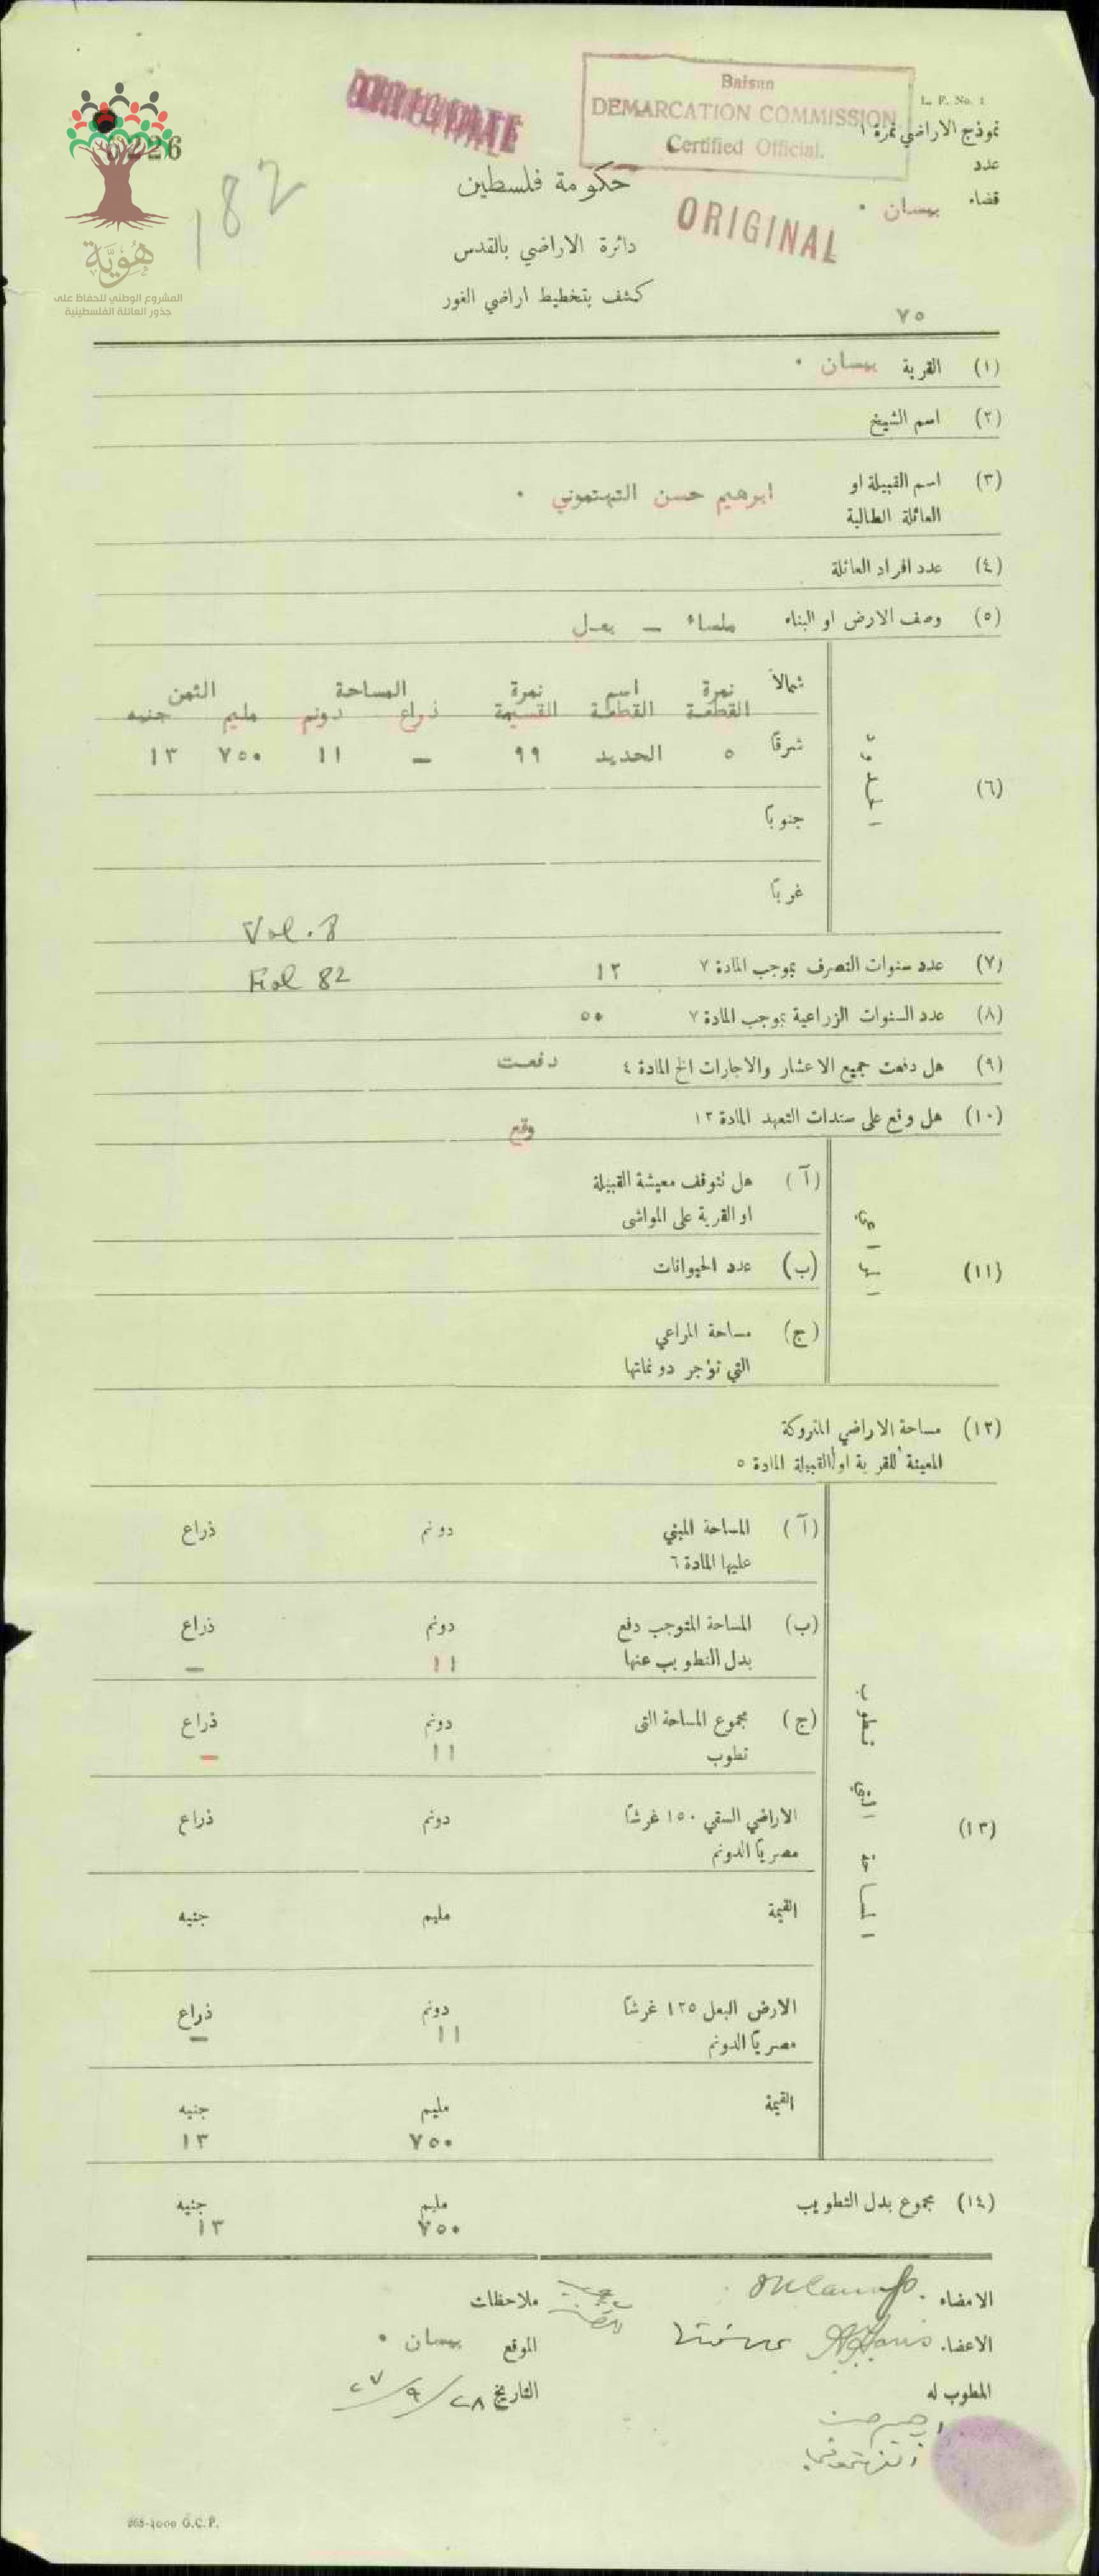 Baisan
DEMARCATION COMMISSION
Certified Official.
L. F. No. 1
نموذج الاراضي نمرة ١
عدد
قضاء بيسان •
6226
182
DUPLICATE
ORIGINAL
هُوِيَّة
المشروع الوطني للحفاظ على
جذور العائلة الفلسطينية
حكومة فلسطين
دائرة الاراضي بالقدس
كشف بتخطيط اراضي الغور
٧٥
(١) القرية بيسان •
(٢) اسم الشيخ
(٣) اسم القبيلة او ابرهيم حسن التهتموني •
العائلة الطالبة
(٤) عدد افراد العائلة
(٥) وصف الارض او البناء ملساء – بعل
(٦) الحدود
شمالاً نمرة اسم نمرة المساحة الثمن
القطعة القطعة القسيمة ذراع دونم مليم جنيه
شرقاً ٥ الحديد ٩٩ – ١١ ٧٥٠ ١٣
جنوباً
غرباً
Vol. 8
Fol 82
(٧) عدد سنوات التصرف بموجب المادة ٧ ١٢
(٨) عدد السنوات الزراعية بموجب المادة ٧ ٥٠
(٩) هل دفعت جميع الاعشار والاجارات الخ المادة ٤ دفعت
(١٠) هل وقع على سندات التعهد المادة ١٢ وقع
(١١) المراعي
(آ) هل تتوقف معيشة القبيلة
او القرية على المواشي
(ب) عدد الحيوانات
(ج) مساحة المراعي
التي تؤجر دونماتها
(١٢) مساحة الاراضي المتروكة
المعينة للقرية او القبيلة المادة ٥
(١٣) المساحة التي تطوب
(آ) المساحة المبني دونم ذراع
عليها المادة ٦
(ب) المساحة المتوجب دفع دونم ذراع
بدل التطويب عنها ١١ –
(ج) مجموع المساحة التي دونم ذراع
تطوب ١١ –
الاراضي السقي ١٥٠ غرشاً دونم ذراع
مصرياً الدونم
القيمة مليم جنيه
الارض البعل ١٢٥ غرشاً دونم ذراع
مصرياً الدونم ١١ –
القيمة مليم جنيه
٧٥٠ ١٣
(١٤) مجموع بدل التطويب مليم جنيه
٧٥٠ ١٣
الامضاء ملاحظات
الاعضاء الموقع بيسان •
المطوب له التاريخ ٢٨/٩/٢٧
868-4000 G.C.P.